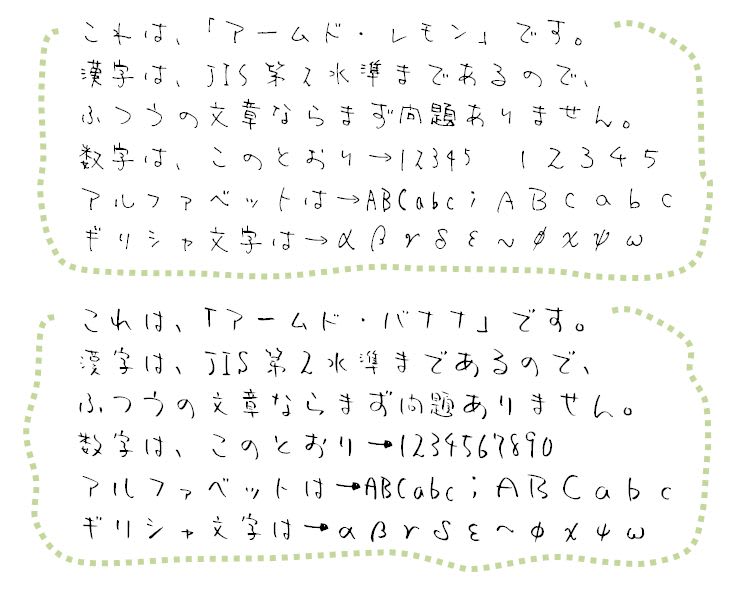 これは、「アームド・レモン」です。
漢字は、JIS第2水準まであるので、
ふつうの文章ならまず問題ありません。
数字は、このとおり→12345　１２３４５
アルファベットは→ABCabc；ＡＢＣａｂｃ
ギリシャ文字は→αβγδε～φχψω
これは、「アームド・バナナ」です。
漢字は、JIS第2水準まであるので、
ふつうの文章ならまず問題ありません。
数字は、このとおり→1234567890
アルファベットは→ABCabc；ＡＢＣａｂｃ
ギリシャ文字は→αβγδε～φχψω